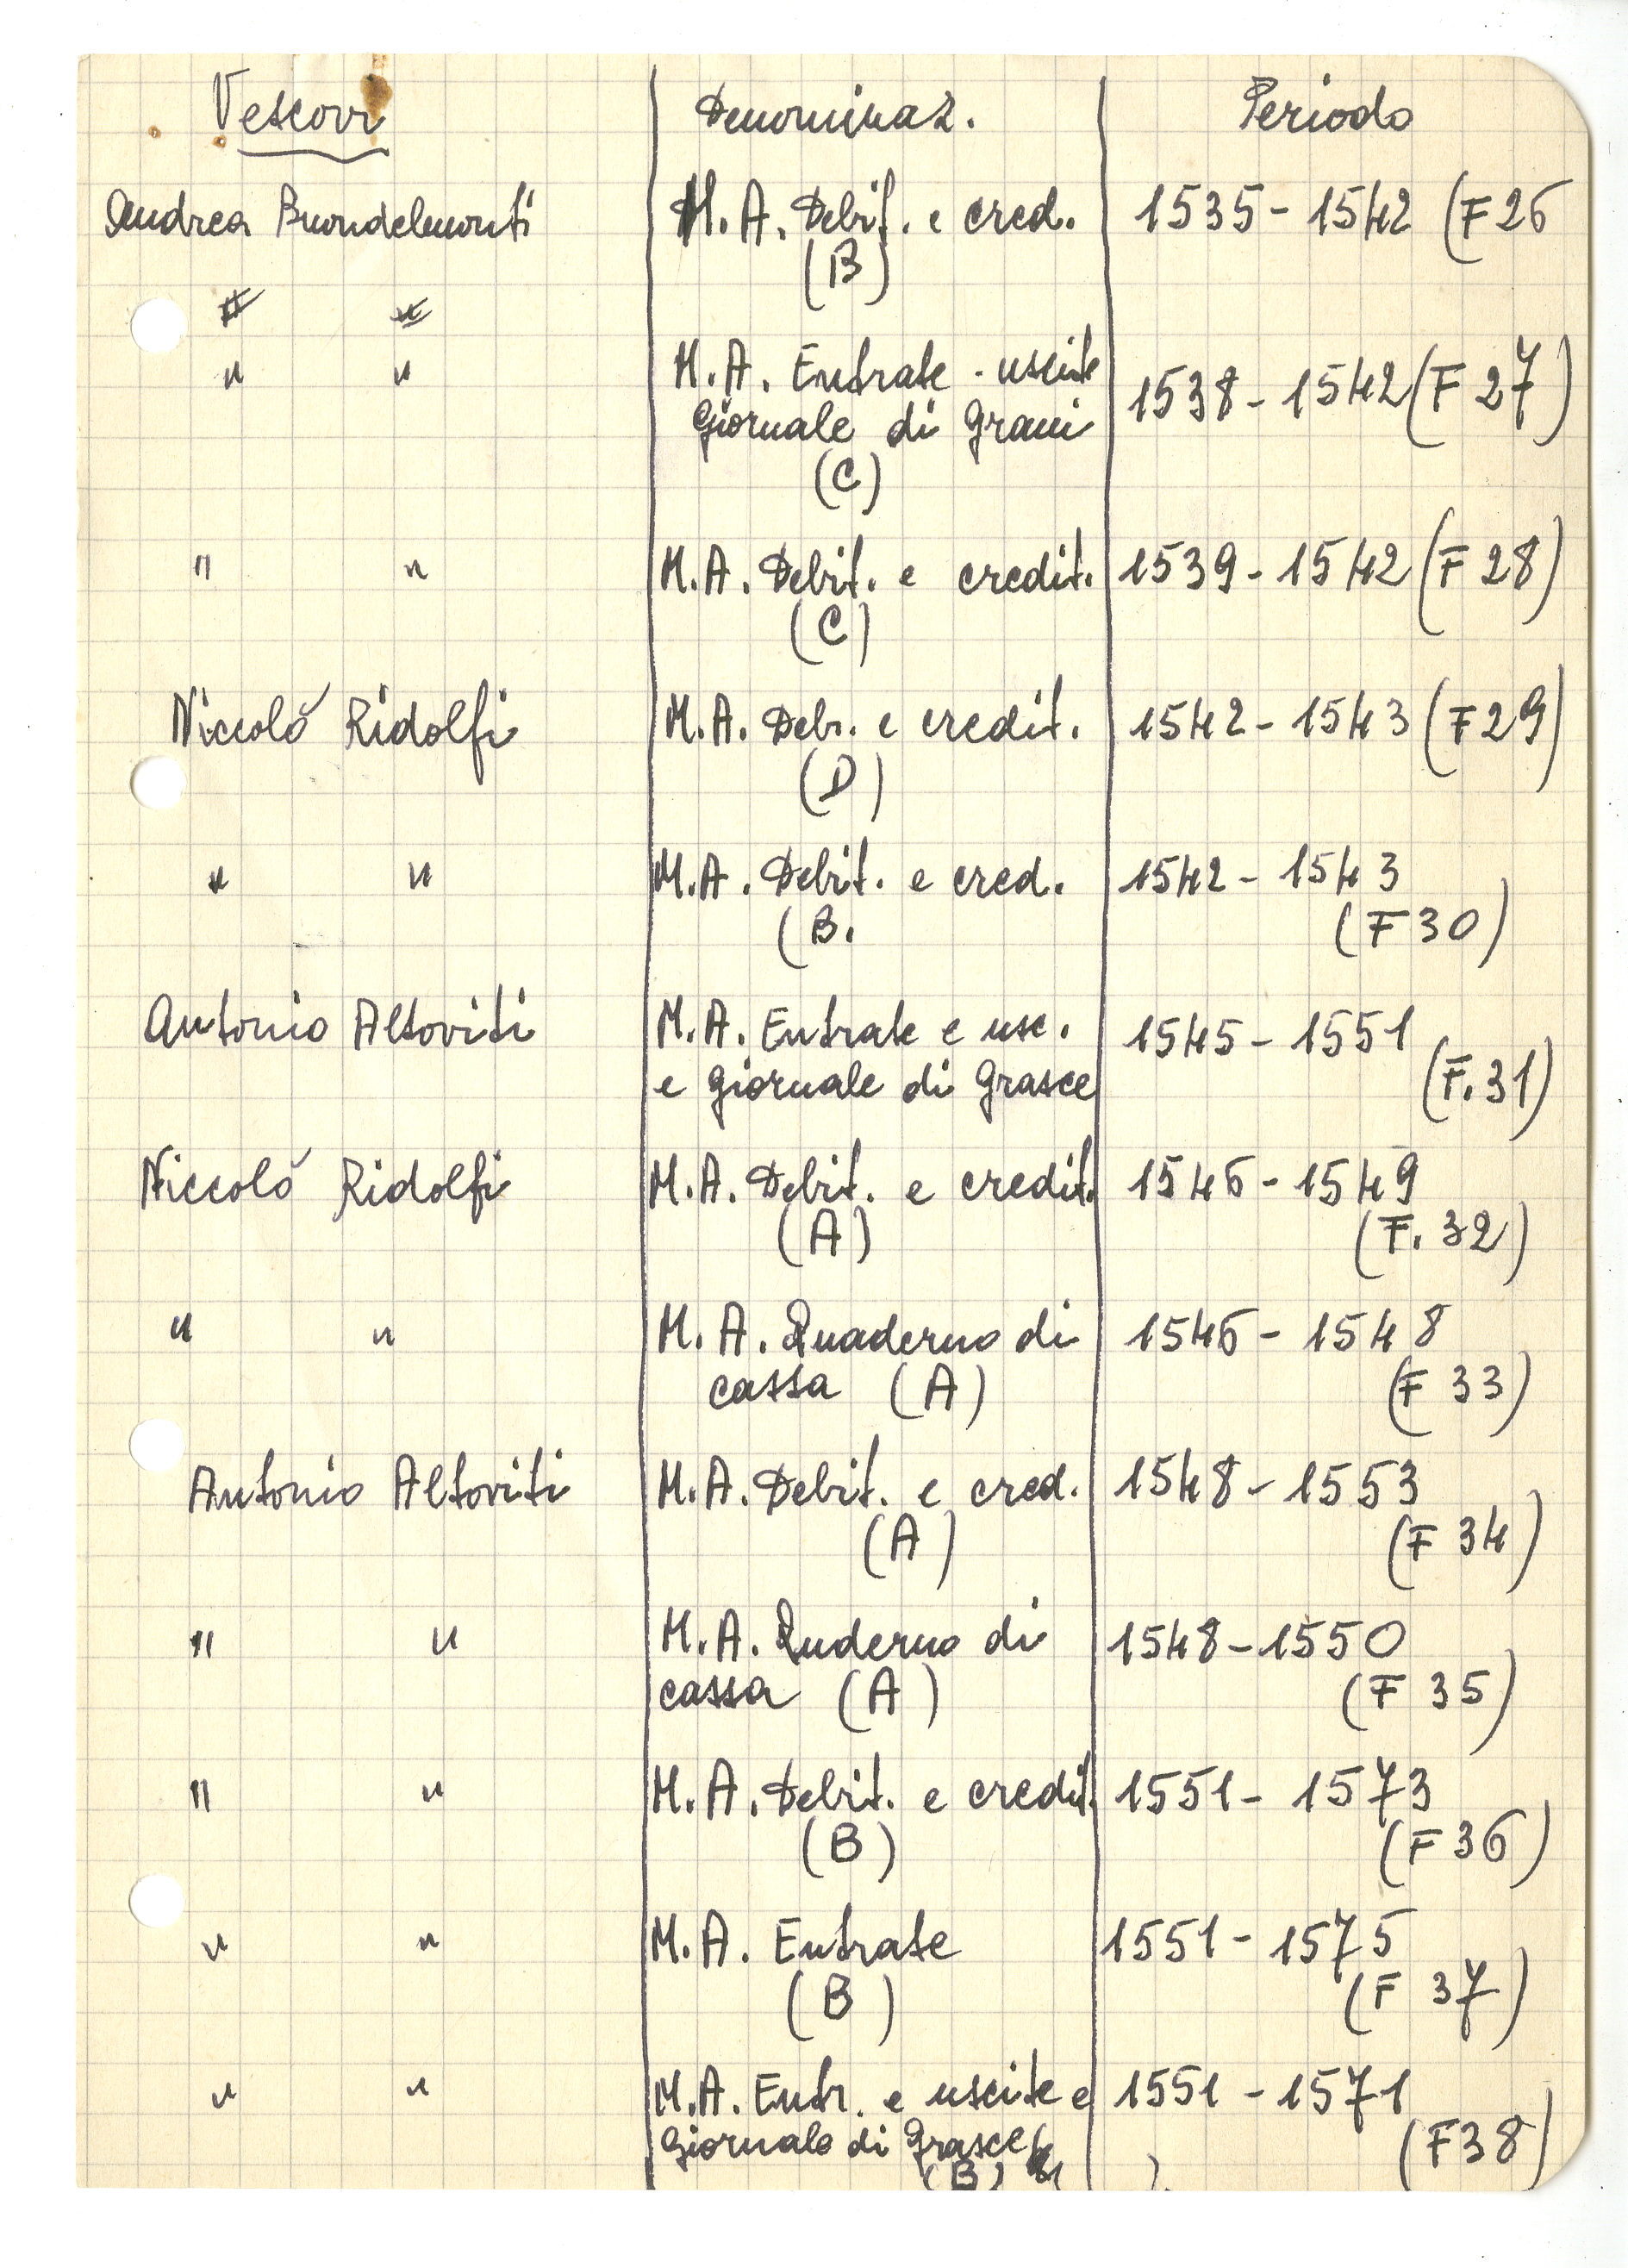 Vescovi Denominaz. Periodo
Andrea Buondelmonti M.A. Debit. e cred. 1535 - 1542 (F 26
(B)
" "
" " M.A. Entrate - uscite 1538 - 1542 (F 27)
Giornale di Grani
(C)
" " M.A. Debit. e credit. 1539 - 1542 (F 28)
(C)
Niccoló Ridolfi M.A. Deb. e credit. 1542 - 1543 (F 29)
(D)
" " M.A. Debit. e cred. 1542 - 1543
(B. (F 30)
Antonio Altoviti M.A. Entrate e usc. 1545 - 1551
e giornale di Grasce (F. 31)
Niccoló Ridolfi M.A. Debit. e credit. 1546 - 1549
(A) (F. 32)
" " M.A. Quaderno di 1546 - 1548
cassa (A) (F 33)
Antonio Altoviti M.A. Debit. e cred. 1548 - 1553
(A) (F 34)
" " M.A. Quderno di 1548 - 1550
cassa (A) (F 35)
" " M.A. Debit. e credit. 1551 - 1573
(B) (F 36)
" " M.A. Entrate 1551 - 1575
(B) (F 37)
" " M.A. Entr. e uscite e 1551 - 1571
Giornale di Grasce (F 38)
(B)